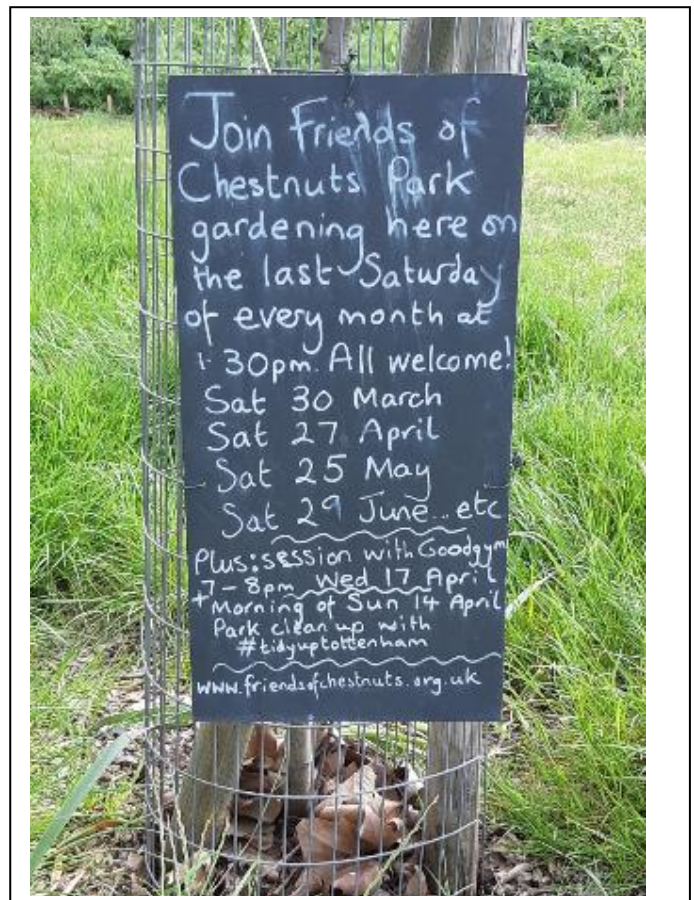 Join Friends of
Chestnuts Park
gardening here on
the last Saturday
of every month at
1·30pm. All welcome!
Sat 30 March
Sat 27 April
Sat 25 May
Sat 29 June...etc
Plus: session with Goodgym
7-8pm Wed 17 April
+ Morning of Sun 14 April
Park clean up with
#tidyuptottenham
www.friendsofchestnuts.org.uk